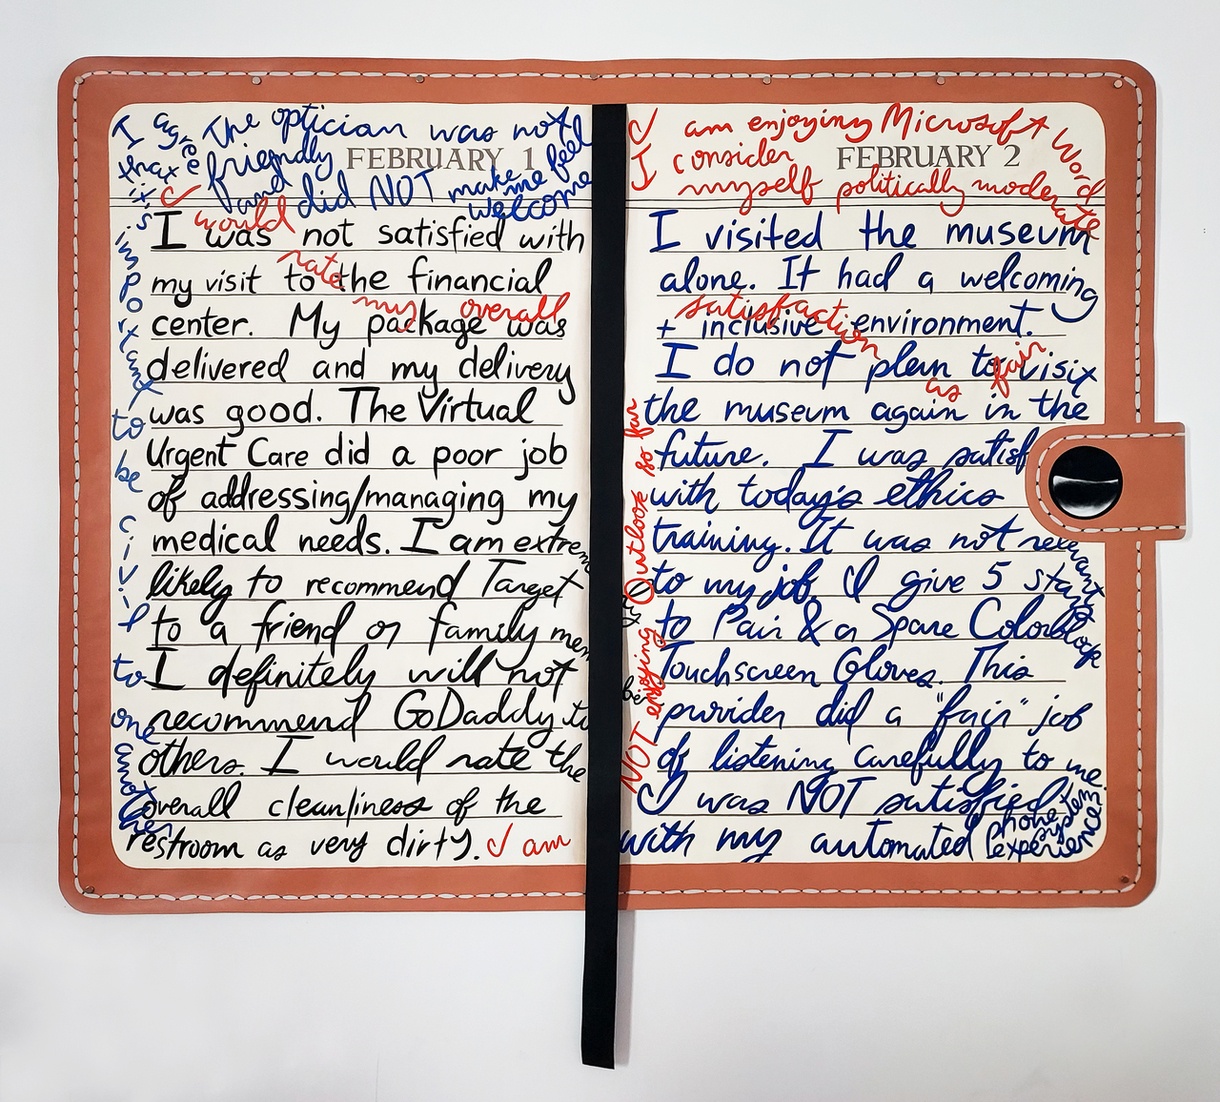 The optician was not
friendly
and did NOT make me feel
welcome
I agree
that
it's
important
to
be
civil
to
one
another
FEBRUARY 1
I was not satisfied with
my visit to the financial
center. My package was
delivered and my delivery
was good. The Virtual
Urgent Care did a poor job
of addressing/managing my
medical needs. I am extrem
likely to recommend Target
to a friend or family mem
I definitely will not
recommend GoDaddy to
others. I would rate the
overall cleanliness of the
restroom as very dirty. I am
NOT enjoying Outlook so far
I would
rate
my overall
satisfaction
as fair
I am enjoying Microsoft Word
I consider
myself politically moderate
FEBRUARY 2
I visited the museum
alone. It had a welcoming
+ inclusive environment.
I do not plan to visit
the museum again in the
future. I was satisf
with today's ethics
training. It was not relevant
to my job. I give 5 stars
to Pair & a Spare Colorblock
Touchscreen Gloves. This
provider did a "fair" job
of listening carefully to me.
I was NOT satisfied
with my automated phone
system
experience.